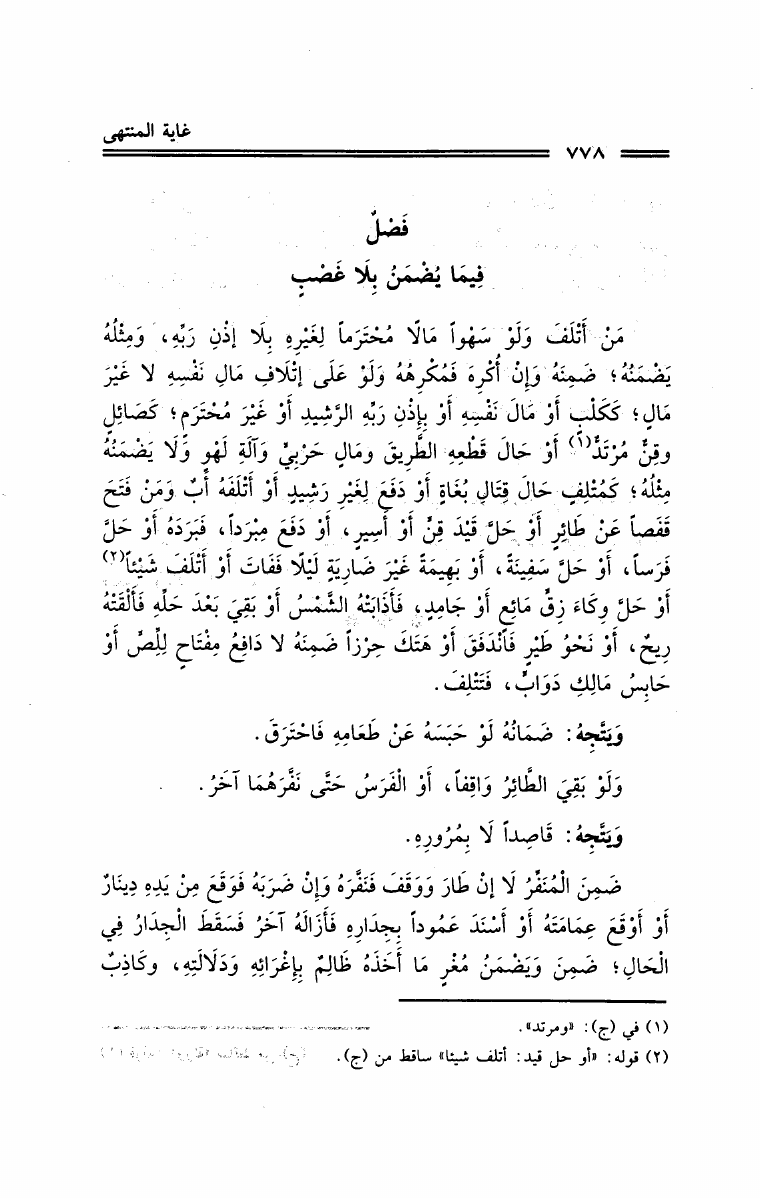 غاية المنتهى
٧٧٨
فَصْلٌ
فِيمَا يُضْمَنُ بِلَا غَصْبٍ
مَنْ أَتْلَفَ وَلَوْ سَهْواً مَالًا مُحْتَرَماً لِغَيْرِهِ بِلَا إِذْنِ رَبِّهِ، وَمِثْلُهُ
يَضْمَنُهُ؛ ضَمِنَهُ وَإِنْ أُكْرِهَ فَمُكْرِهُهُ وَلَوْ عَلَى إِتْلَافِ مَالِ نَفْسِهِ لا غَيْرَ
مَالٍ؛ كَكَلْبٍ أَوْ مَالَ نَفْسِهِ أَوْ بِإِذْنِ رَبِّهِ الرَّشِيدِ أَوْ غَيْرَ مُحْتَرَمٍ؛ كَصَائِلٍ
وقِنٍّ مُرْتَدٍّ(١) أَوْ حَالَ قَطْعِهِ الطَّرِيقَ ومَالِ حَرْبِيٍّ وَآلَةِ لَهْوٍ وَّلَا يَضْمَنُهُ
مِثْلُهُ؛ كَمُتْلِفٍ حَالَ قِتَالِ بُغَاةٍ أَوْ دَفَعَ لِغَيْرِ رَشِيدٍ أَوْ أَتْلَفَهُ أَبٌ وَمَنْ فَتَحَ
قَفَصاً عَنْ طَائِرٍ أَوْ حَلَّ قَيْدَ قِنٍّ أَوْ أَسِيرٍ، أَوْ دَفَعَ مِبْرَداً، فَبَرَدَهُ أَوْ حَلَّ
فَرَساً، أَوْ حَلَّ سَفِينَةً، أَوْ بَهِيمَةً غَيْرَ ضَارِيَةٍ لَيْلًا فَفَاتَ أَوْ أَتْلَفَ شَيْئاً(٢)
أَوْ حَلَّ وِكَاءَ زِقٍّ مَائِعٍ أَوْ جَامِدٍ، فَأَذَابَتْهُ الشَّمْسُ أَوْ بَقِيَ بَعْدَ حَلِّهِ فَأَلْقَتْهُ
رِيحٌ، أَوْ نَحْوُ طَيْرٍ فَأَنْدَفَقَ أَوْ هَتَكَ حِرْزاً ضَمِنَهُ لا دَافِعُ مِفْتَاحٍ لِلِصٍّ أَوْ
حَابِسُ مَالِكِ دَوَابٍّ، فَتَتْلِفَ.
وَيَتَّجِهُ: ضَمَانُهُ لَوْ حَبَسَهُ عَنْ طَعَامِهِ فَاحْتَرَقَ.
وَلَوْ بَقِيَ الطَّائِرُ وَاقِفاً، أَوْ الْفَرَسُ حَتَّى نَفَّرَهُمَا آخَرُ.
وَيَتَّجِهُ: قَاصِداً لَا بِمُرُورِهِ.
ضَمِنَ الْمُنَفِّرُ لَا إِنْ طَارَ وَوَقَفَ فَنَفَّرَهُ وَإِنْ ضَرَبَهُ فَوَقَعَ مِنْ يَدِهِ دِينَارٌ
أَوْ أَوْقَعَ عِمَامَتَهُ أَوْ أَسْنَدَ عَمُوداً بِجِدَارِهِ فَأَزَالَهُ آخَرُ فَسَقَطَ الْجِدَارُ فِي
الْحَالِ؛ ضَمِنَ وَيَضْمَنُ مُغْرٍ مَا أَخَذَهُ ظَالِمٌ بِإِغْرَائِهِ وَدَلَالَتِهِ، وكَاذِبٌ
(١) في (ج): «ومرتد».
(٢) قوله: «أو حل قيد: أتلف شيئا» ساقط من (ج).